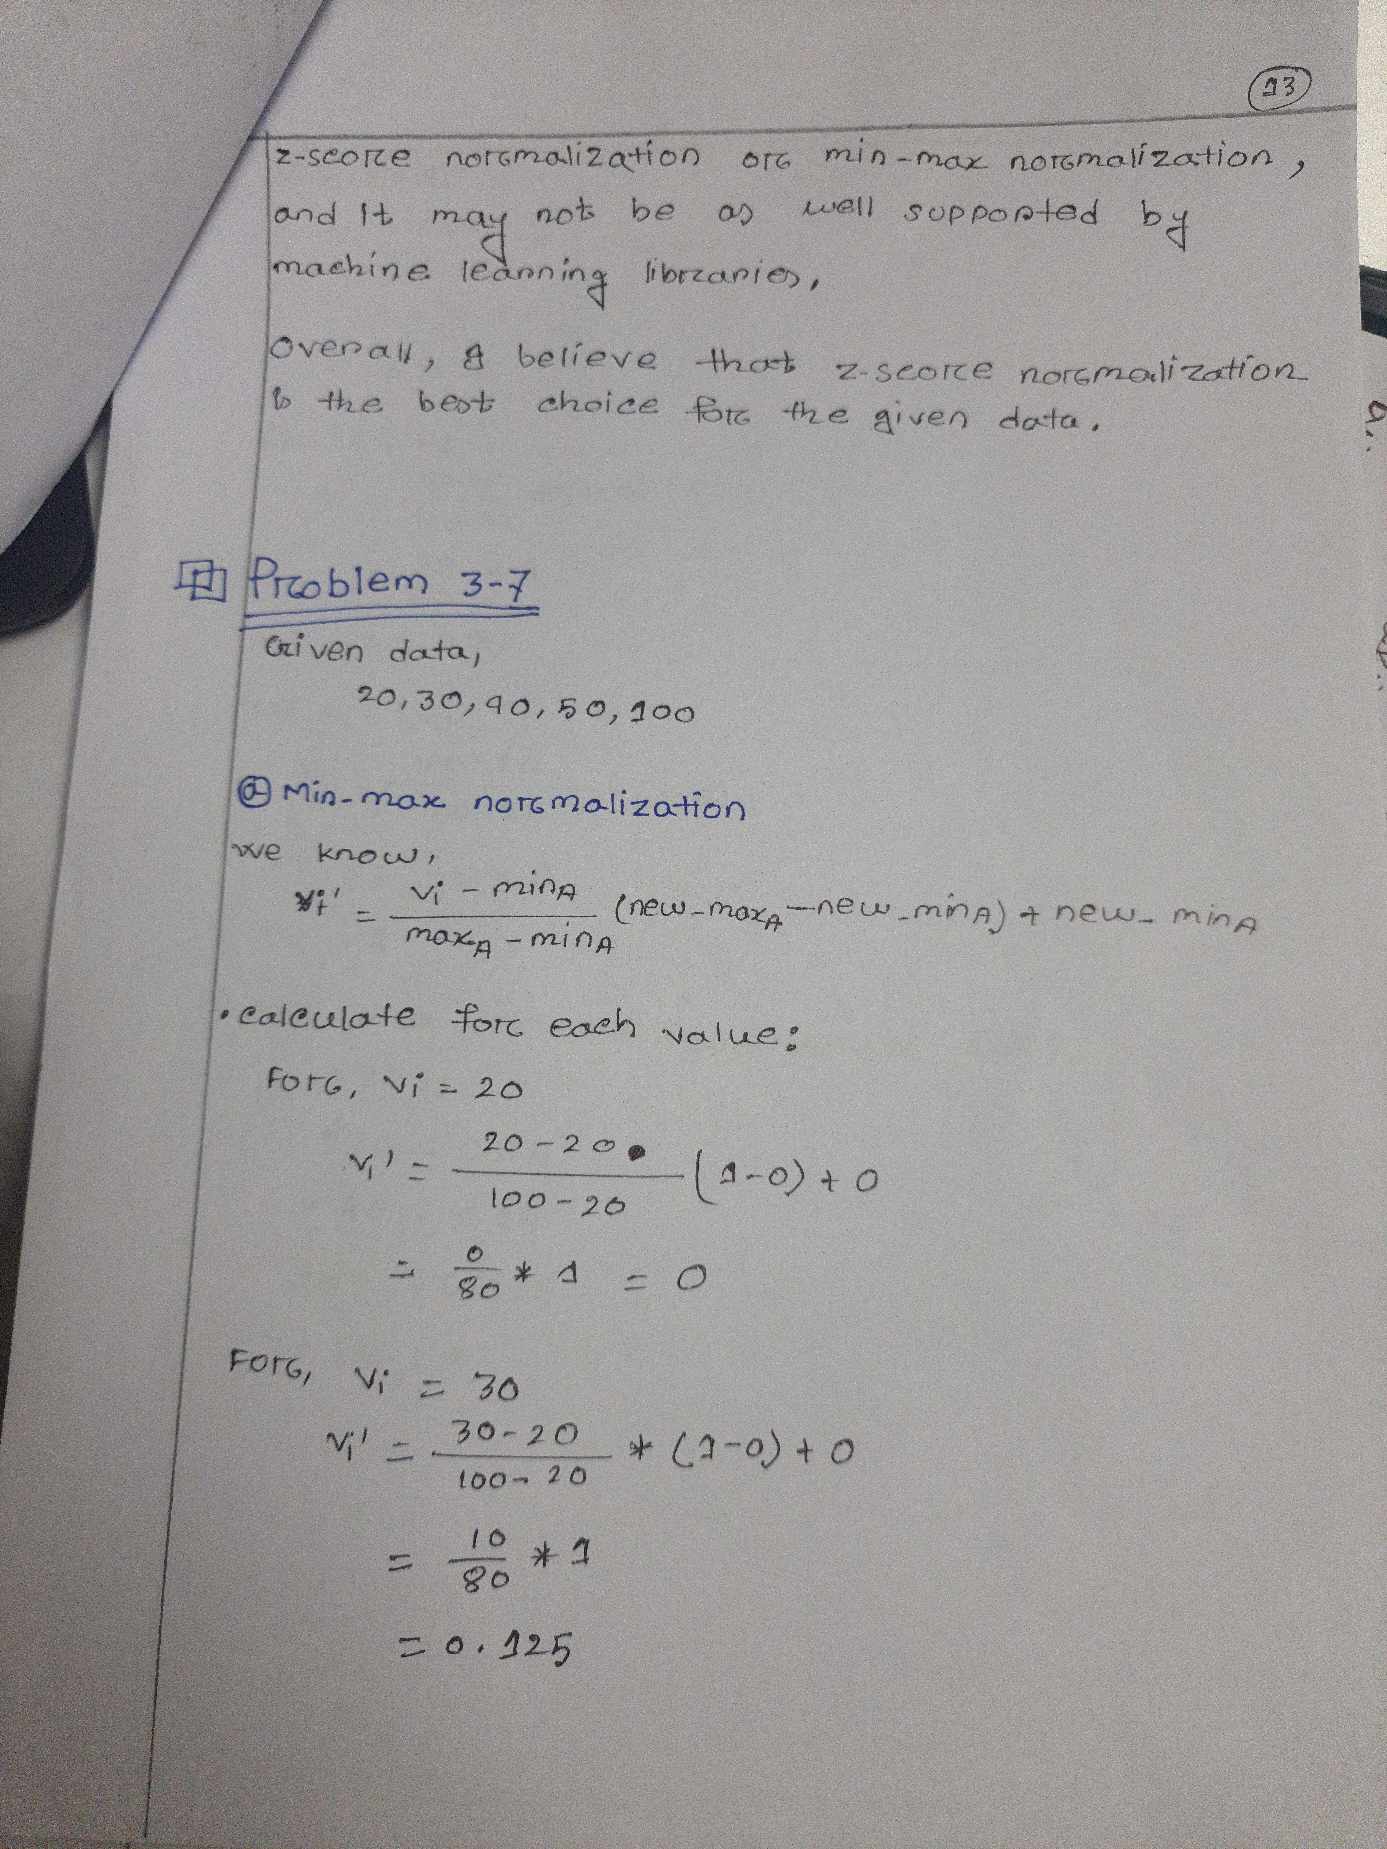 13
z-score normalization or min-max normalization,
and it may not be as well supported by
machine learning libraries,
Overall, I believe that z-score normalization
is the best choice for the given data.
Problem 3-7
Given data,
20, 30, 40, 50, 100
(a) Min-max normalization
we know,
vi' = (vi - minA) / (maxA - minA) (new_maxA - new_minA) + new_minA
• calculate for each value:
For, vi = 20
vi' = (20-20) / (100-20) (1-0) + 0
= 0/80 * 1 = 0
For, vi = 30
vi' = (30-20) / (100-20) * (1-0) + 0
= 10/80 * 1
= 0.125